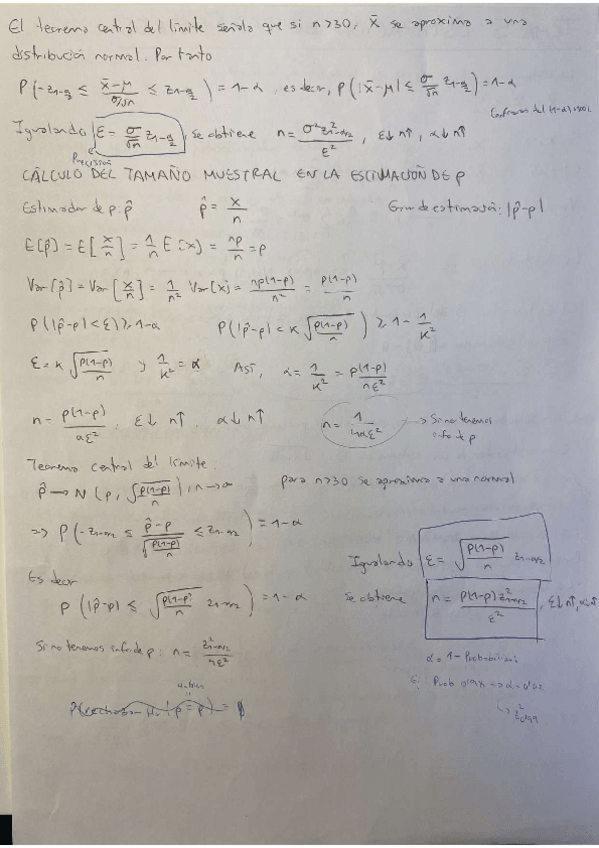 El teorema central del límite señala que si n>30, x̄ se aproxima a una
distribución normal. Por tanto
P(-z₁₋α/₂ ≤ (x̄-μ)/(σ/√n) ≤ z₁₋α/₂) = 1-α, es decir, P(|x̄-μ| ≤ σ/√n z₁₋α/₂) = 1-α
Confianza del (1-α)100%
Igualando ε = σ/√n z₁₋α/₂, se obtiene n = σ²z²₁₋α/₂/ε², ε↓ n↑, α↓ n↑
Precisión
CÁLCULO DEL TAMAÑO MUESTRAL EN LA ESTIMACIÓN DE p
Estimador de p: p̂ p̂ = x/n Error de estimación: |p̂-p|
E[p̂] = E[x/n] = 1/n E[x] = np/n = p
Var[p̂] = Var[x/n] = 1/n² Var[x] = np(1-p)/n² = p(1-p)/n
P(|p̂-p|<ε) ≥ 1-α P(|p̂-p| < K √(p(1-p)/n)) ≥ 1 - 1/K²
ε = K √(p(1-p)/n) y 1/K² = α Así, α = 1/K² = p(1-p)/nε²
n = p(1-p)/αε² ε↓ n↑. α↓ n↑ n = 1/4αε² → Si no tenemos
info de p
Teorema central del límite.
p̂ → N(p, √(p(1-p)/n)), n→∞ para n>30 se aproxima a una normal
=> P(-z₁₋α/₂ ≤ (p̂-p)/√(p(1-p)/n) ≤ z₁₋α/₂) = 1-α
Igualando ε = √(p(1-p)/n) z₁₋α/₂
Es decir
P(|p̂-p| ≤ √(p(1-p)/n) z₁₋α/₂) = 1-α se obtiene n = p(1-p)z²₁₋α/₂/ε², ε↓ n↑, α↓ n↑
Si no tenemos info de p: n = z²₁₋α/₂/4ε²
α = 1 - Probabilidad